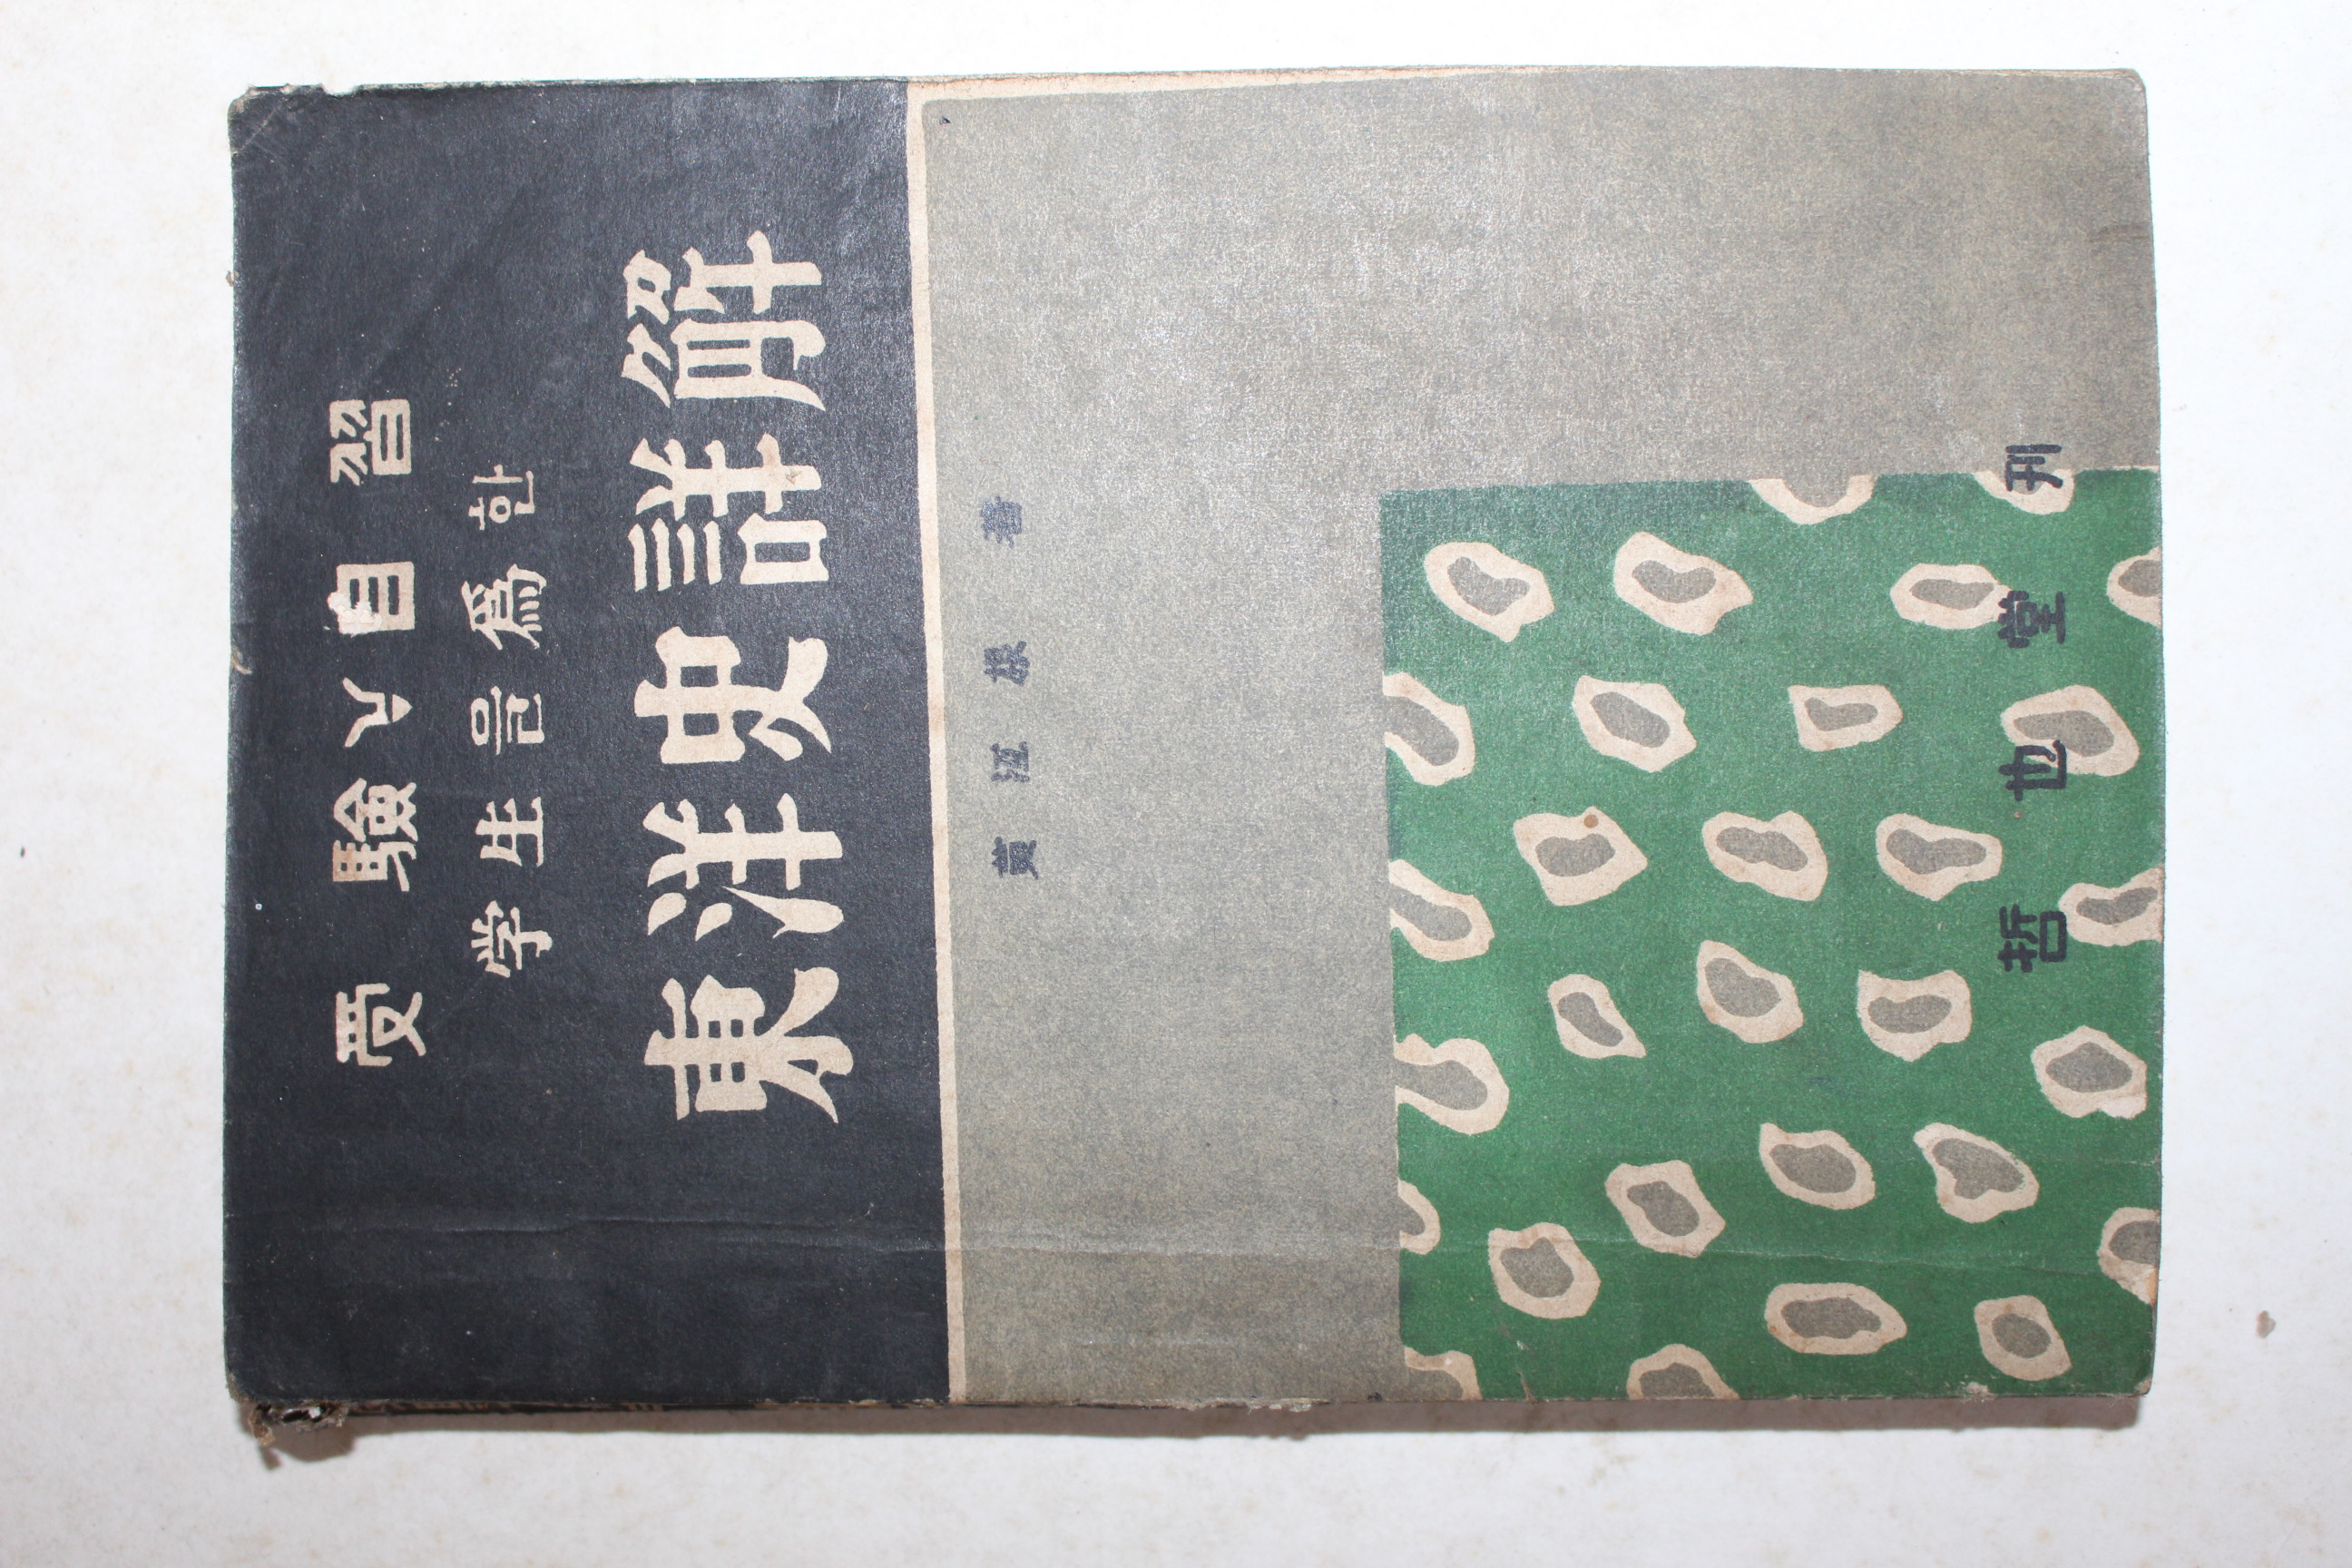 受驗 自習
学生를 爲한
東洋史詳解
黃江根 著
哲也堂 刊